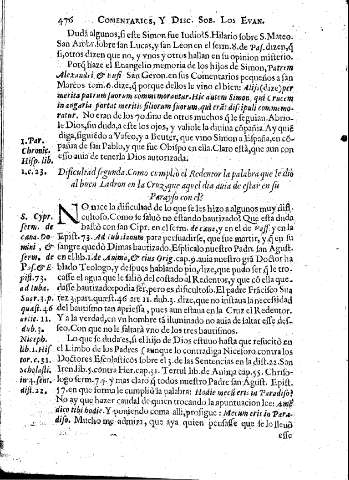 476 COMENTARIOS, Y DISC. SOB. LOS EVAN.
Dudã algunos, si este Simon fue Iudio? S. Hilario sobre S. Mateo.
San Ambr. sobre san Lucas, y san Leon en el serm. 8. de Pas. dizen, q̃
si, otros dizen que no, y vnos y otros hallan en su opinion misterio.
Porq̃ haze el Evangelio memoria de los hijos de Simon, Patrem
Alexandri & Rufi. San Geron. en sus Comentarios pequeños a san
Marcos tom. 6. dize, q̃ porque dellos le vino el bien: Alij (dize) per
merita patrum suorum commemorantur. Hic autem Simon, qui Crucem
in angaria portat meritis filiorum suorum, qui erãt discipuli commemo-
ratur. No eran de los 70. sino de otros muchos q̃ le seguian. Abrio-
le Dios, sin duda, a este los ojos, y valiole la diuina cõpañia. Ay quiẽ
diga, siguiẽdo a Vaseo, y a Beuter, que vino Simon a España, en cõ-
pañia de san Pablo, y que fue Obispo en ella. Claro està, que aun con
esso auia de tenerla Dios autorizada.
1. Par.
Chronic.
Hisp. lib.
1. c. 23.
Dificultad segunda. Como cumpliò el Redentor la palabra que le diò
al boen Ladron en la Cruz, que aquel dia auia de estar en su
Parayso con el?
NO nace la dificultad de lo que se les hizo a algunos muy difi-
cultoso. Como se saluò no estando bautizado? Que està duda
bastò con san Cipr. en el serm. de cæna, y en el de Pass. y en la
Epist. 73. Ad Iubaianum para persuadirse, que fue martir, y q̃ en su
sangre quedò Dimas bautizado. Esplicalo nuestro Padre san Agust.
en el lib. 1. de Anima, & eius Orig. cap. 9. auia nuestro grã Doctor ha
blado Teologo, y despues hablando pio, dize, que pudo ser q̃ le tro-
casse el agua que le saliò del costado al Redentor, y que cõ ella que-
dasse bautizado: podia ser, pero es dificultoso. El padre Frãcisco Sua
rez 3. part. quest. 46 art. 11. dub. 3. dize, que no instaua la necessidad
del bautismo tan apriessa, pues aun estaua en la Cruz el Redentor.
Y a la verdad, en vn hombre tã iluminado no auia de faltar esse des-
seo. Con que no le faltarà vno de los tres bautismos.
S. Cypr.
serm. de
cæna Do-
mini, &
serm. de
Pas. & E-
pist. 73.
ad Iuba.
Suar. 3. p.
quæst. 46
artic. 11.
dub. 3.
Lo que se duda es, si el hijo de Dios estuuo hasta que resucitò en
el Limbo de los Padres (aunque lo contradiga Niceforo contra los
Doctores Escolasticos sobre el 3. de las Sentencias en la dist. 22. San
Iren. lib. 5. contra Her. cap. 31. Tertul. lib. de Anima cap. 55. Chriso-
logo serm. 74. y mas claro q̃ todos nuestro Padre san Agust. Epist.
57. en que forma le cumpliò la palabra: Hodie mecũ eris in Paradiso?
No ay que hazer caudal de quien trocando la apuntuacion lee: Amẽ
dico tibi hodie. Y poniendo coma alli, prosigue: Mecum eris in Para-
diso. Mucho me admira, que aya quien pensasse que se lo lleuò
Niceph.
lib. 1. Hist
or. c. 31.
Scholasti.
in 4. sent.
dist. 22.
esse